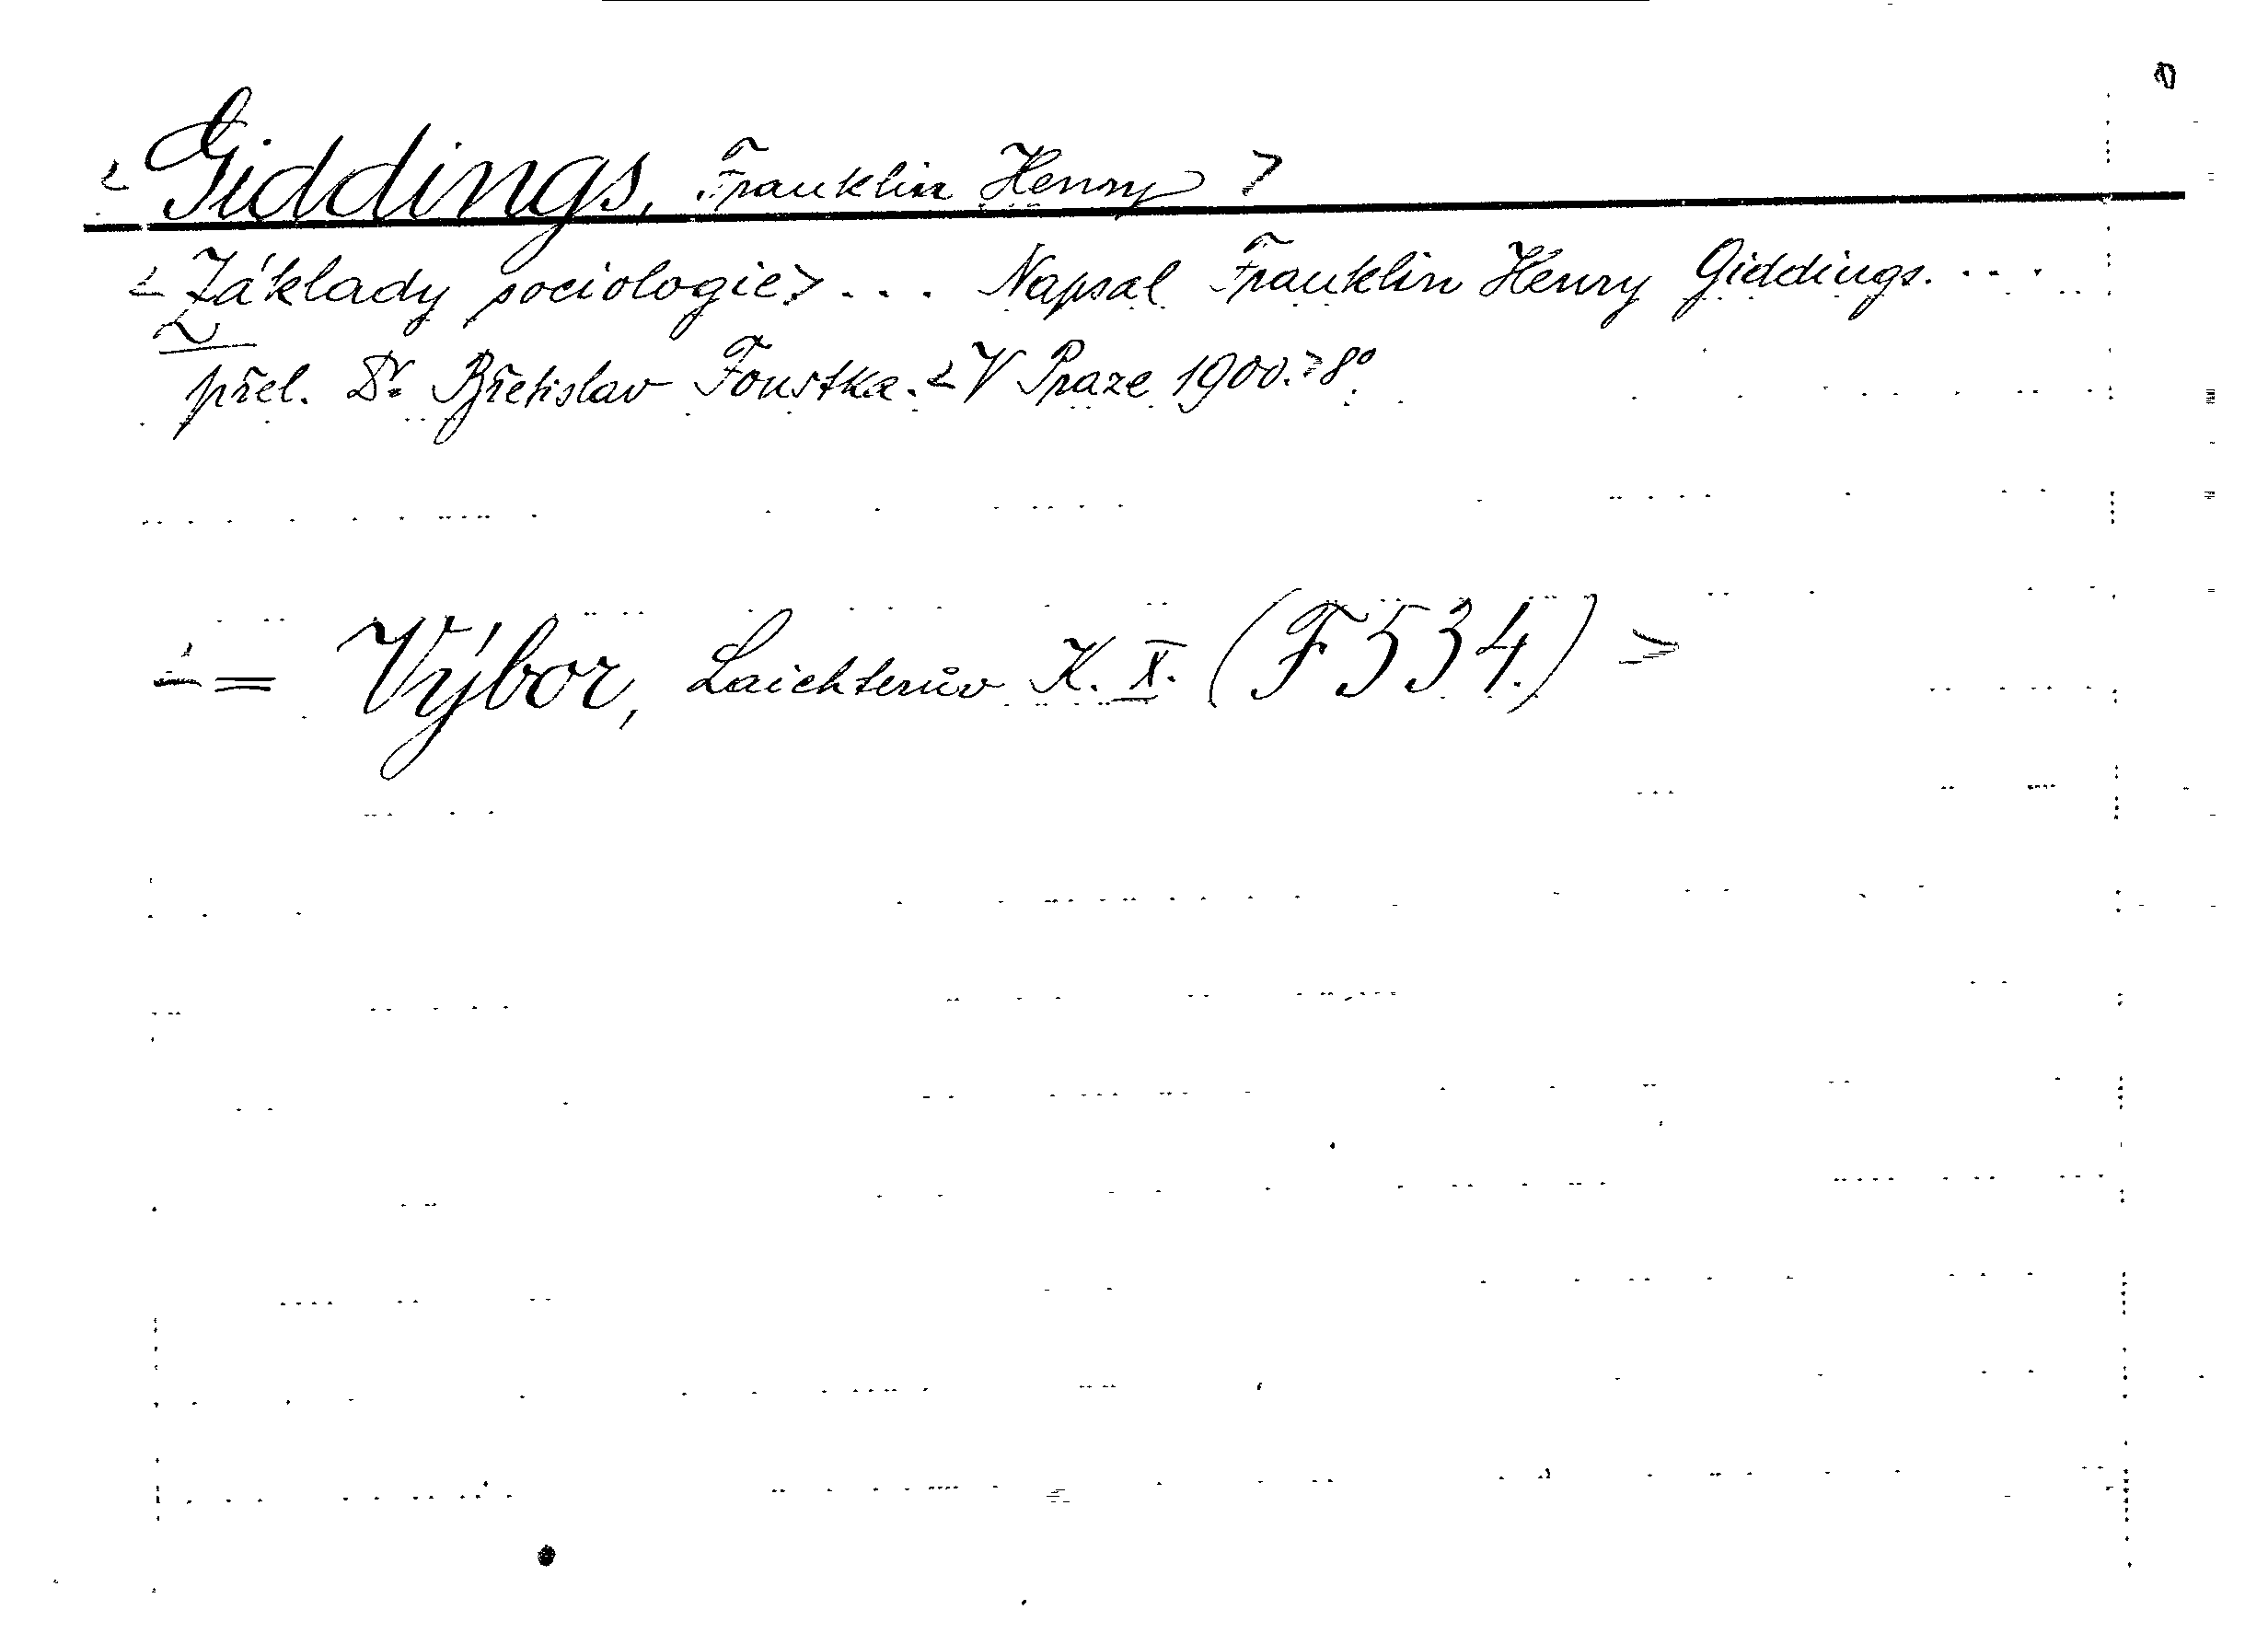 <Giddings, Franklin Henry>
<Základy sociologie> ... Napsal Franklin Henry Giddings. ...
přel. Dr. Břetislav Foustka. <V Praze 1900.> 8°.
<= Výbor, Laichterův K. X. (F 534.)>